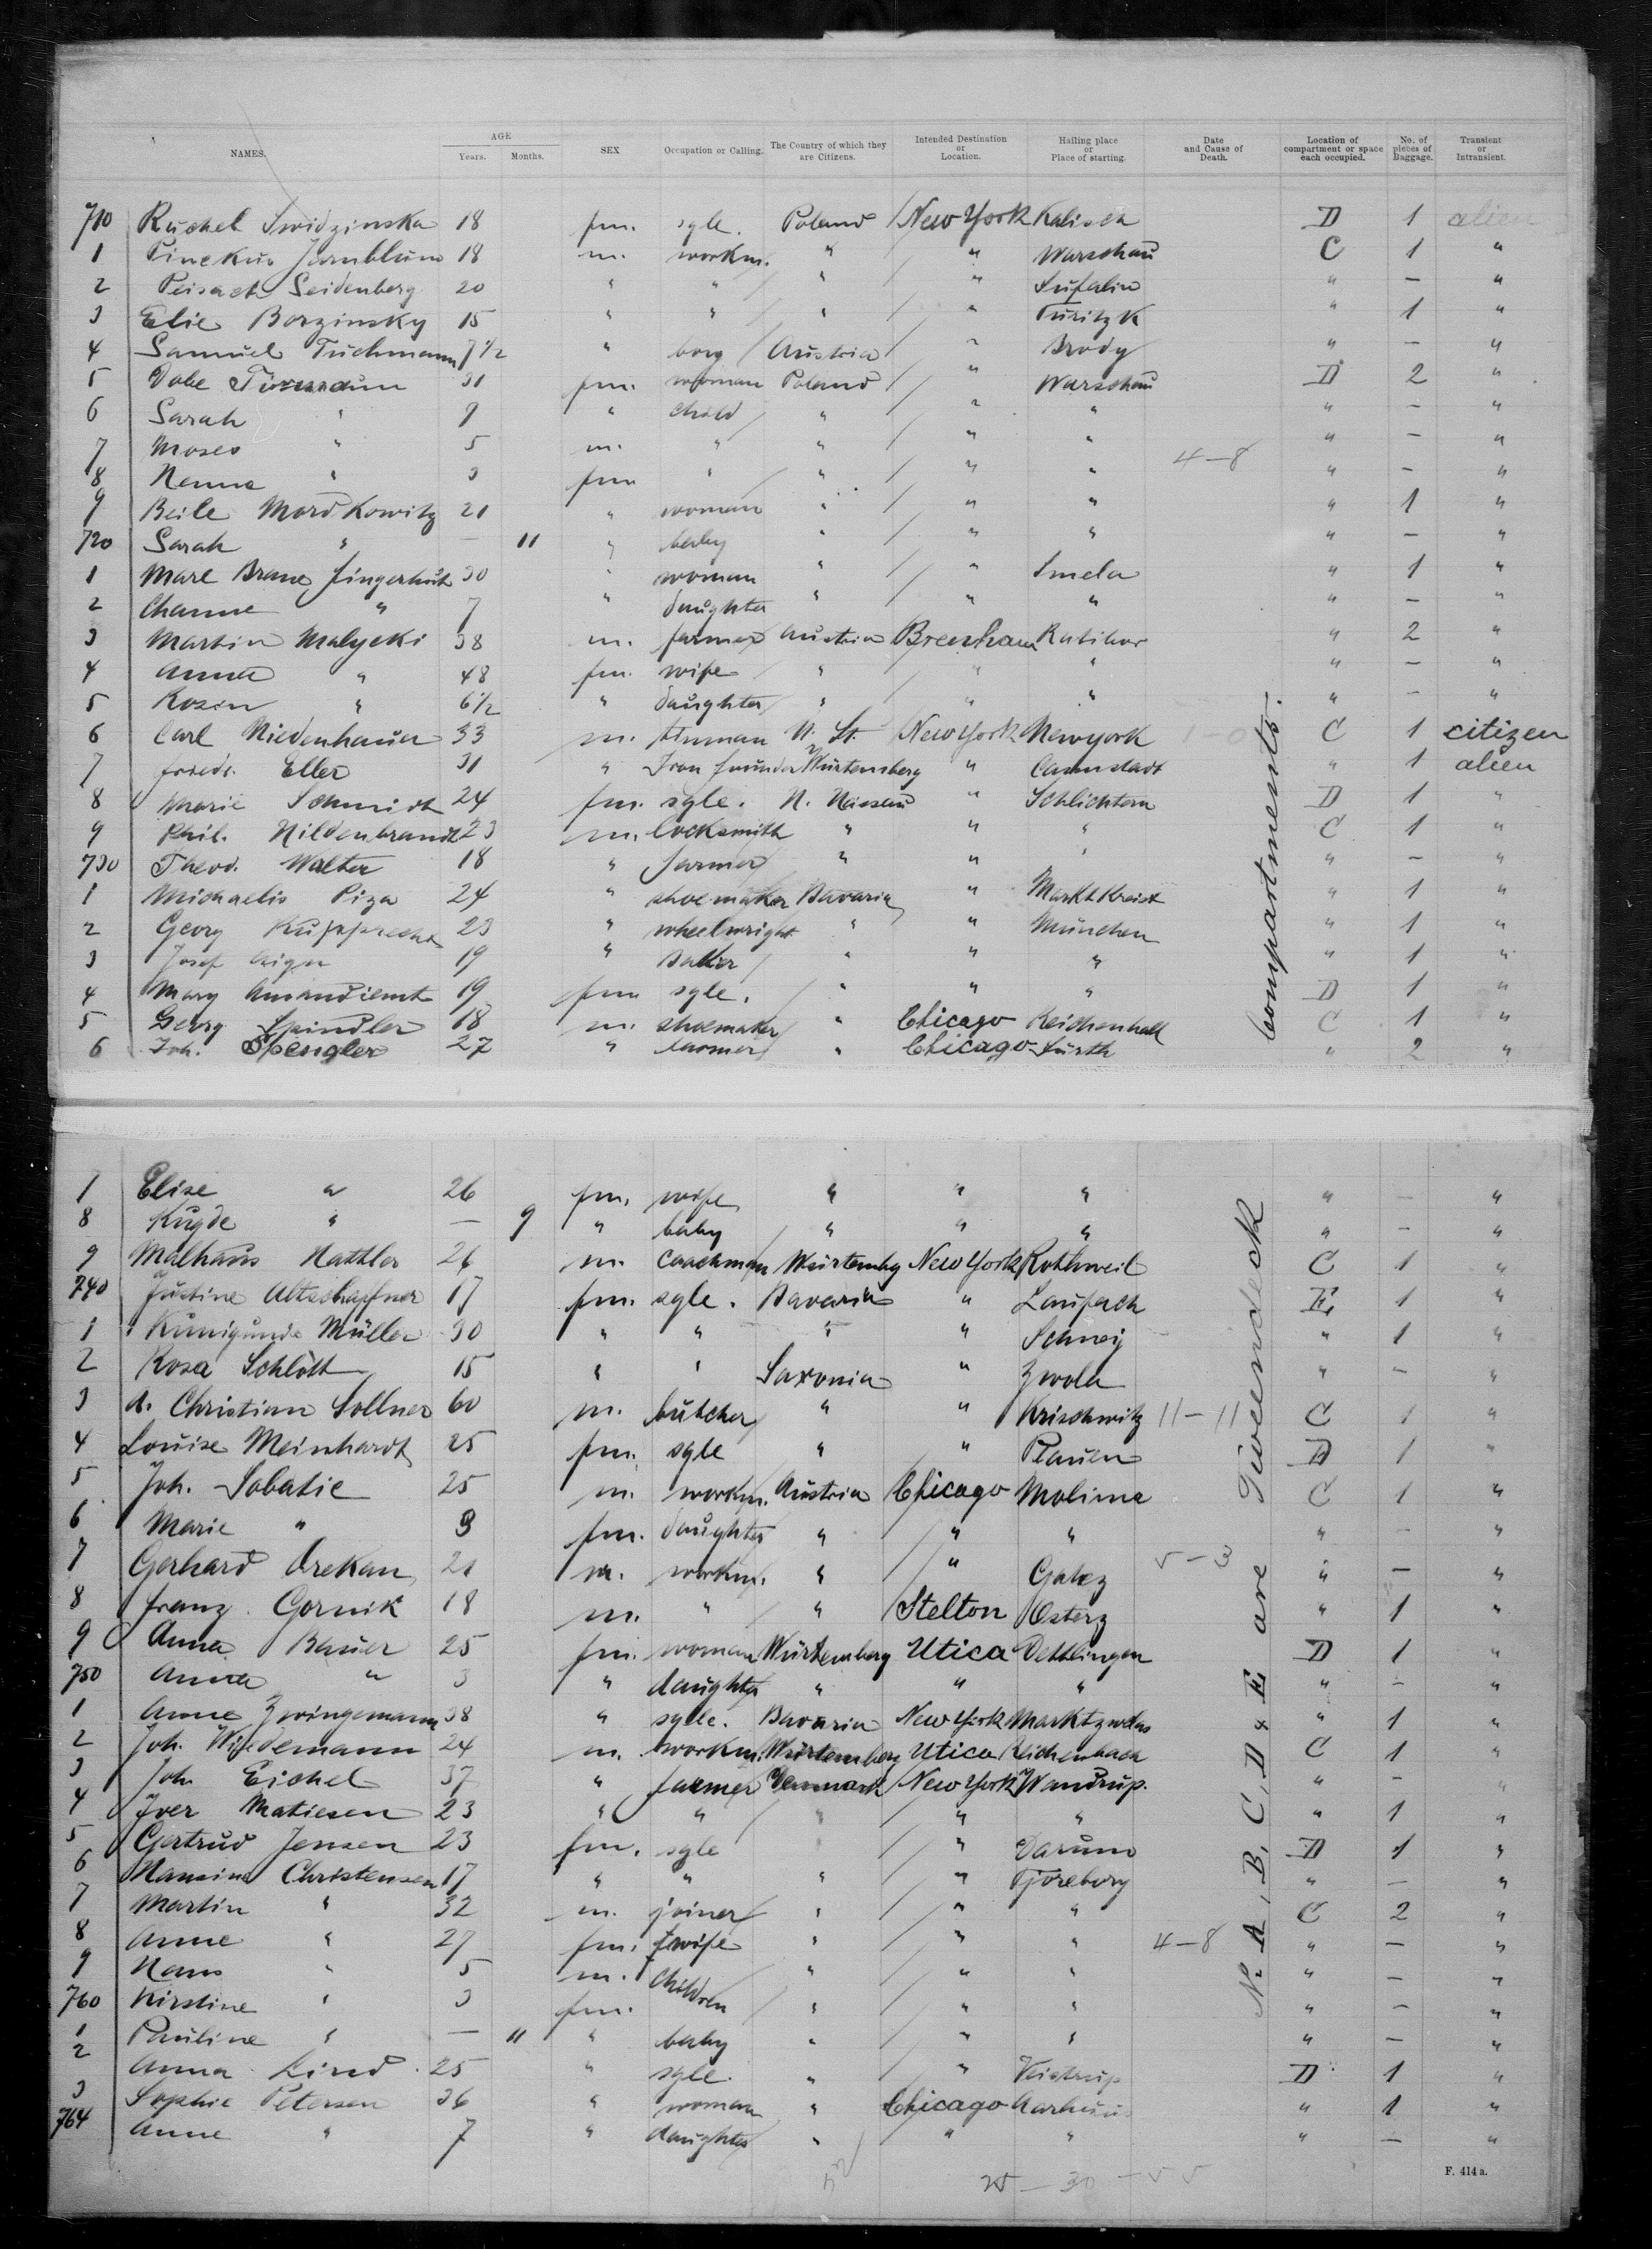 NAMES. AGE Years. Months. SEX Occupation or Calling. The Country of which they are Citizens. Intended Destination or Location. Hailing place or Place of starting. Date and Cause of Death. Location of compartment or space each occupied. No. of pieces of Baggage. Transient or Intransient.
710 Ruchel Swidzinska 18 fm. sgle. Poland New York Kalisch D 1 alien
1 Pinekus Jarnblum 18 m. workm. " " Warschau C 1 "
2 Peisach Seidenberg 20 " " " " " — "
3 Elie Borzinsky 15 " " " " Turitzk " 1 "
4 Samuel Tuchmann 7 1/2 " boy Austria " Brody " — "
5 Dobe 31 fm. woman Poland " Warschau D 2 "
6 Sarah " 9 " child " " " " — "
7 Moses " 5 m. " " " " " — "
8 " 3 fm " " " " 4-8 " — "
9 Beile Mordkowitz 21 " woman " " " " 1 "
720 Sarah " — 11 " baby " " " " — "
1 Marl Brane Fingerhut 30 " woman " " Smela " 1 "
2 Channe " 7 " daughter " " " " — "
3 Martin Malycki 38 m. farmer Austria Brenham Ratibor " 2 "
4 Anna " 48 fm. wife " " " " — "
5 Rosin " 6 1/2 " daughter " " " " — "
6 Carl Niedenhauer 33 m. U. St. New York Newyork C 1 citizen
7 Friedr. Eller 31 " Iron founder Würtemberg " Cannstadt " 1 alien
8 Marie Schmidt 24 fm. sgle. H. Nassau " Schlichtern D 1 "
9 Phil. Hildenbrandt 23 m. locksmith " " " C 1 "
730 Theod. Walter 18 " farmer " " " " — "
1 Michaelis Piza 24 " shoemaker Bavaria " " 1 "
2 Georg Rupprecht 23 " wheelwright " " München " 1 "
3 Josef Aigner 19 " Baker " " " " 1 "
4 Mary 19 fm sgle. " " " D 1 "
5 Georg Spindler 18 m. shoemaker " Chicago Reichenhall C 1 "
6 Joh. Spengler 27 " farmer " Chicago Fürth " 2 "
1 Elise " 26 fm. wife " " " " — "
8 " — 9 " baby " " " " — "
9 Malhaus Nattler 26 m. Coachman Würtembg New York Rothweil C 1 "
740 Justine Altschapfner 17 fm. sgle. Bavaria " Laufach E 1 "
1 Kunigunde Müller 30 " " " " Schney " 1 "
2 Rosa Schlott 15 " " Saxonia " Zwola " — "
3 d. Christian Sollner 60 m. butcher " " Krischwitz 11-11 C 1 "
4 Louise Meinhardt 25 fm. sgle " " Plauen D 1 "
5 Joh. Sobatie 25 m. workm. Austria Chicago Molima C 1 "
6 Marie " 9 fm. daughter " " " " — "
7 Gerhard Orekan 21 m. workm. " " 5-3 " — "
8 Franz Gornik 18 m. " " Stelton Osterz " 1 "
9 Anna Bauer 25 fm. woman Würtemberg Utica Dettlingen D 1 "
750 Anna " 3 " daughter " " " " — "
1 Anna Zwingemann 38 " sgle. Bavaria New York " 1 "
2 Joh. Wiedemann 24 m. workm. Würtemberg Utica Reichenbach C 1 "
3 Joh Eichel 37 " farmer Denmark New York Wandrup. " — "
4 Iver Matiesen 23 " " " " " " 1 "
5 Gertrud Jensen 23 fm. sgle " Darum D 1 "
6 Hansine Christensen 17 " " " " Tjoreborg " — "
7 Martin " 32 m. joiner " " " C 2 "
8 Anne " 27 fm. wife " " " 4-8 " — "
9 Hans " 5 m. Children " " " " — "
760 Kirstine " 3 fm. " " " " — "
1 Pauline " — 11 " baby " " " " — "
2 Anna Lind 25 " sgle. " " D 1 "
3 Sophie Petersen 36 " woman " Chicago Aarhuus " 1 "
764 Anne " 7 " daughter " " " " — "
No. A, B, C, D & E are Tweendeck Compartments.
25 - 30 - 55
F. 414 a.